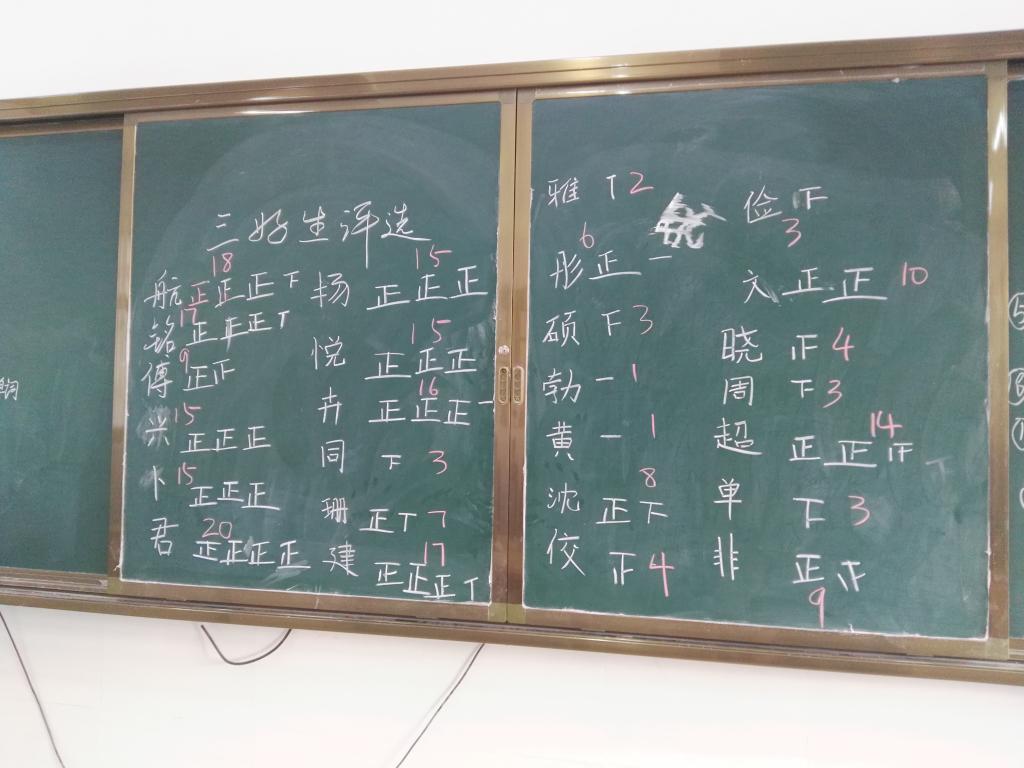 三好生评选
航 正正正下 18
铭 正正正丅 17
傅 正正 9
兴 正正正 15
卜 正正正 15
君 正正正正 20
杨 正正正 15
悦 正正正 15
卉 正正正一 16
同 下 3
珊 正丅 7
建 正正正丅 17
雅 丅 2
彤 正一 6
硕 下 3
勃 一 1
黄 一 1
沈 正下 8
佼 正 4
俭 下 3
文 正正 10
晓 正 4
周 下 3
超 正正正 14
单 下 3
非 正正 9